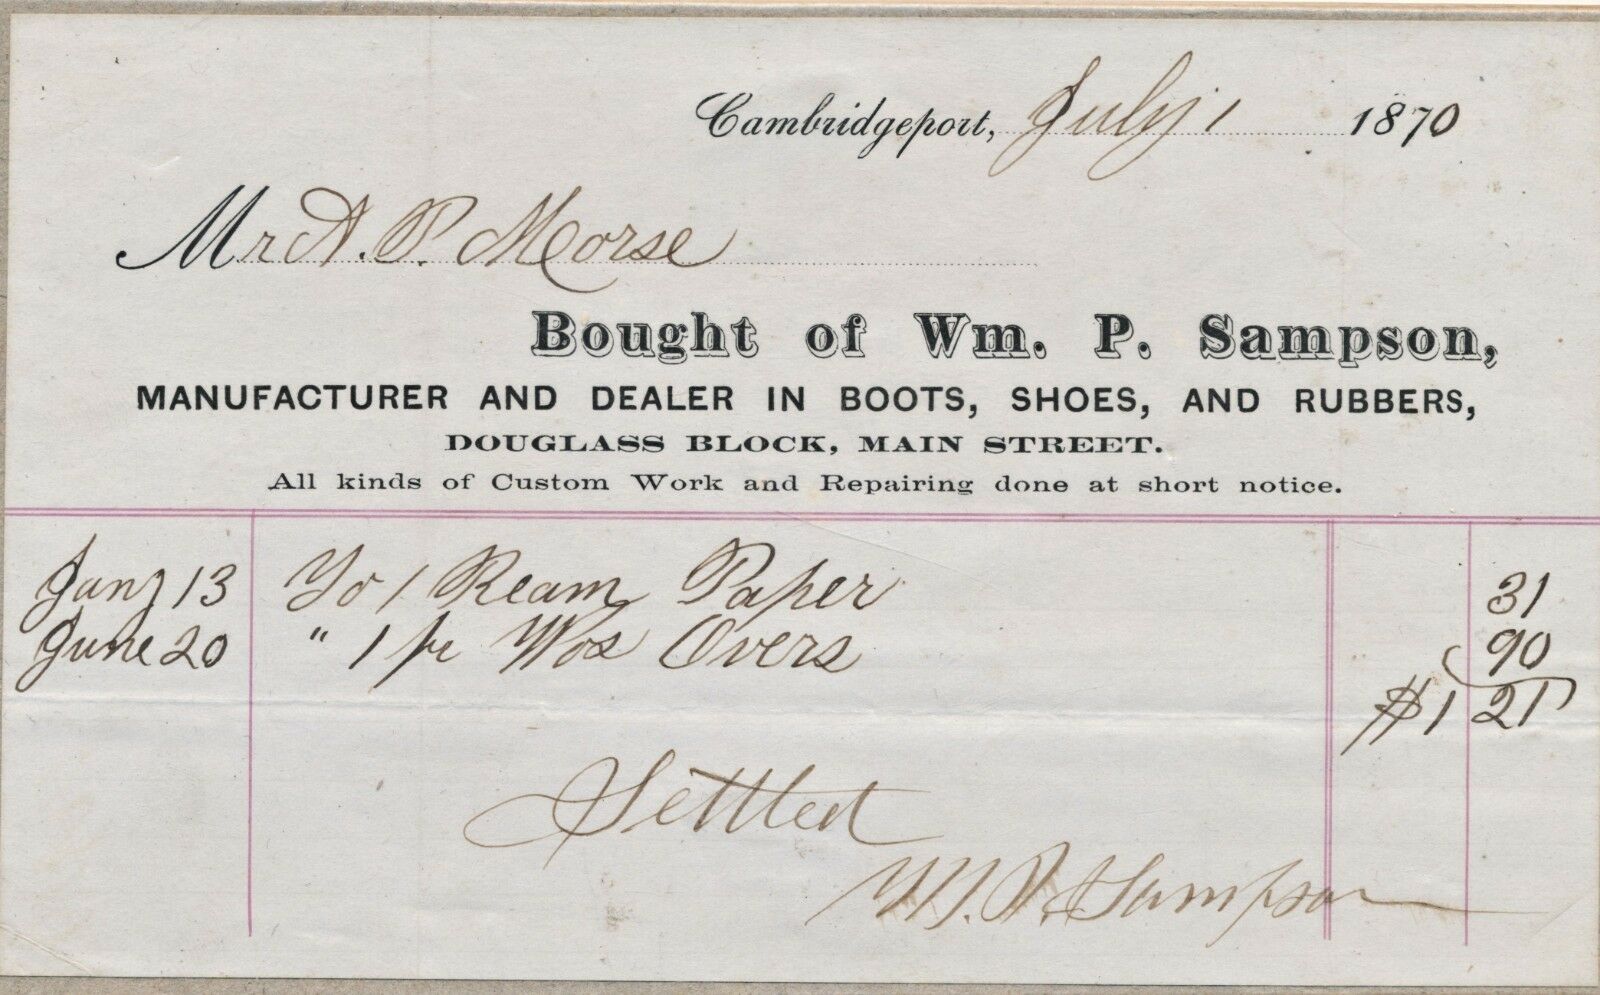 Cambridgeport, July 1 1870
Mr A. P. Morse
Bought of Wm. P. Sampson,
MANUFACTURER AND DEALER IN BOOTS, SHOES, AND RUBBERS,
DOUGLASS BLOCK, MAIN STREET.
All kinds of Custom Work and Repairing done at short notice.
Jany 13 To 1 Ream Paper 31
June 20 " 1 pr Wos Overs 90
$1 21
Settled
W. P. Sampson